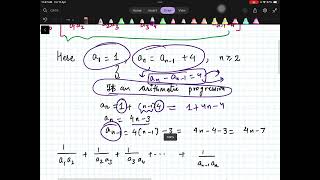 a₁a₂ a₂a₃
Here a₁ = 1 , aₙ = aₙ₋₁ + 4 , n ≥ 2
aₙ - aₙ₋₁ = 4
It's an arithmetic progression
aₙ = 1 + (n-1) 4 = 1 + 4n - 4
aₙ = 4n-3
aₙ₋₁ = 4(n-1) - 3 = 4n - 4 - 3 = 4n - 7
1/a₁a₂ + 1/a₂a₃ + 1/a₃a₄ + ... + 1/aₙ₋₁aₙ